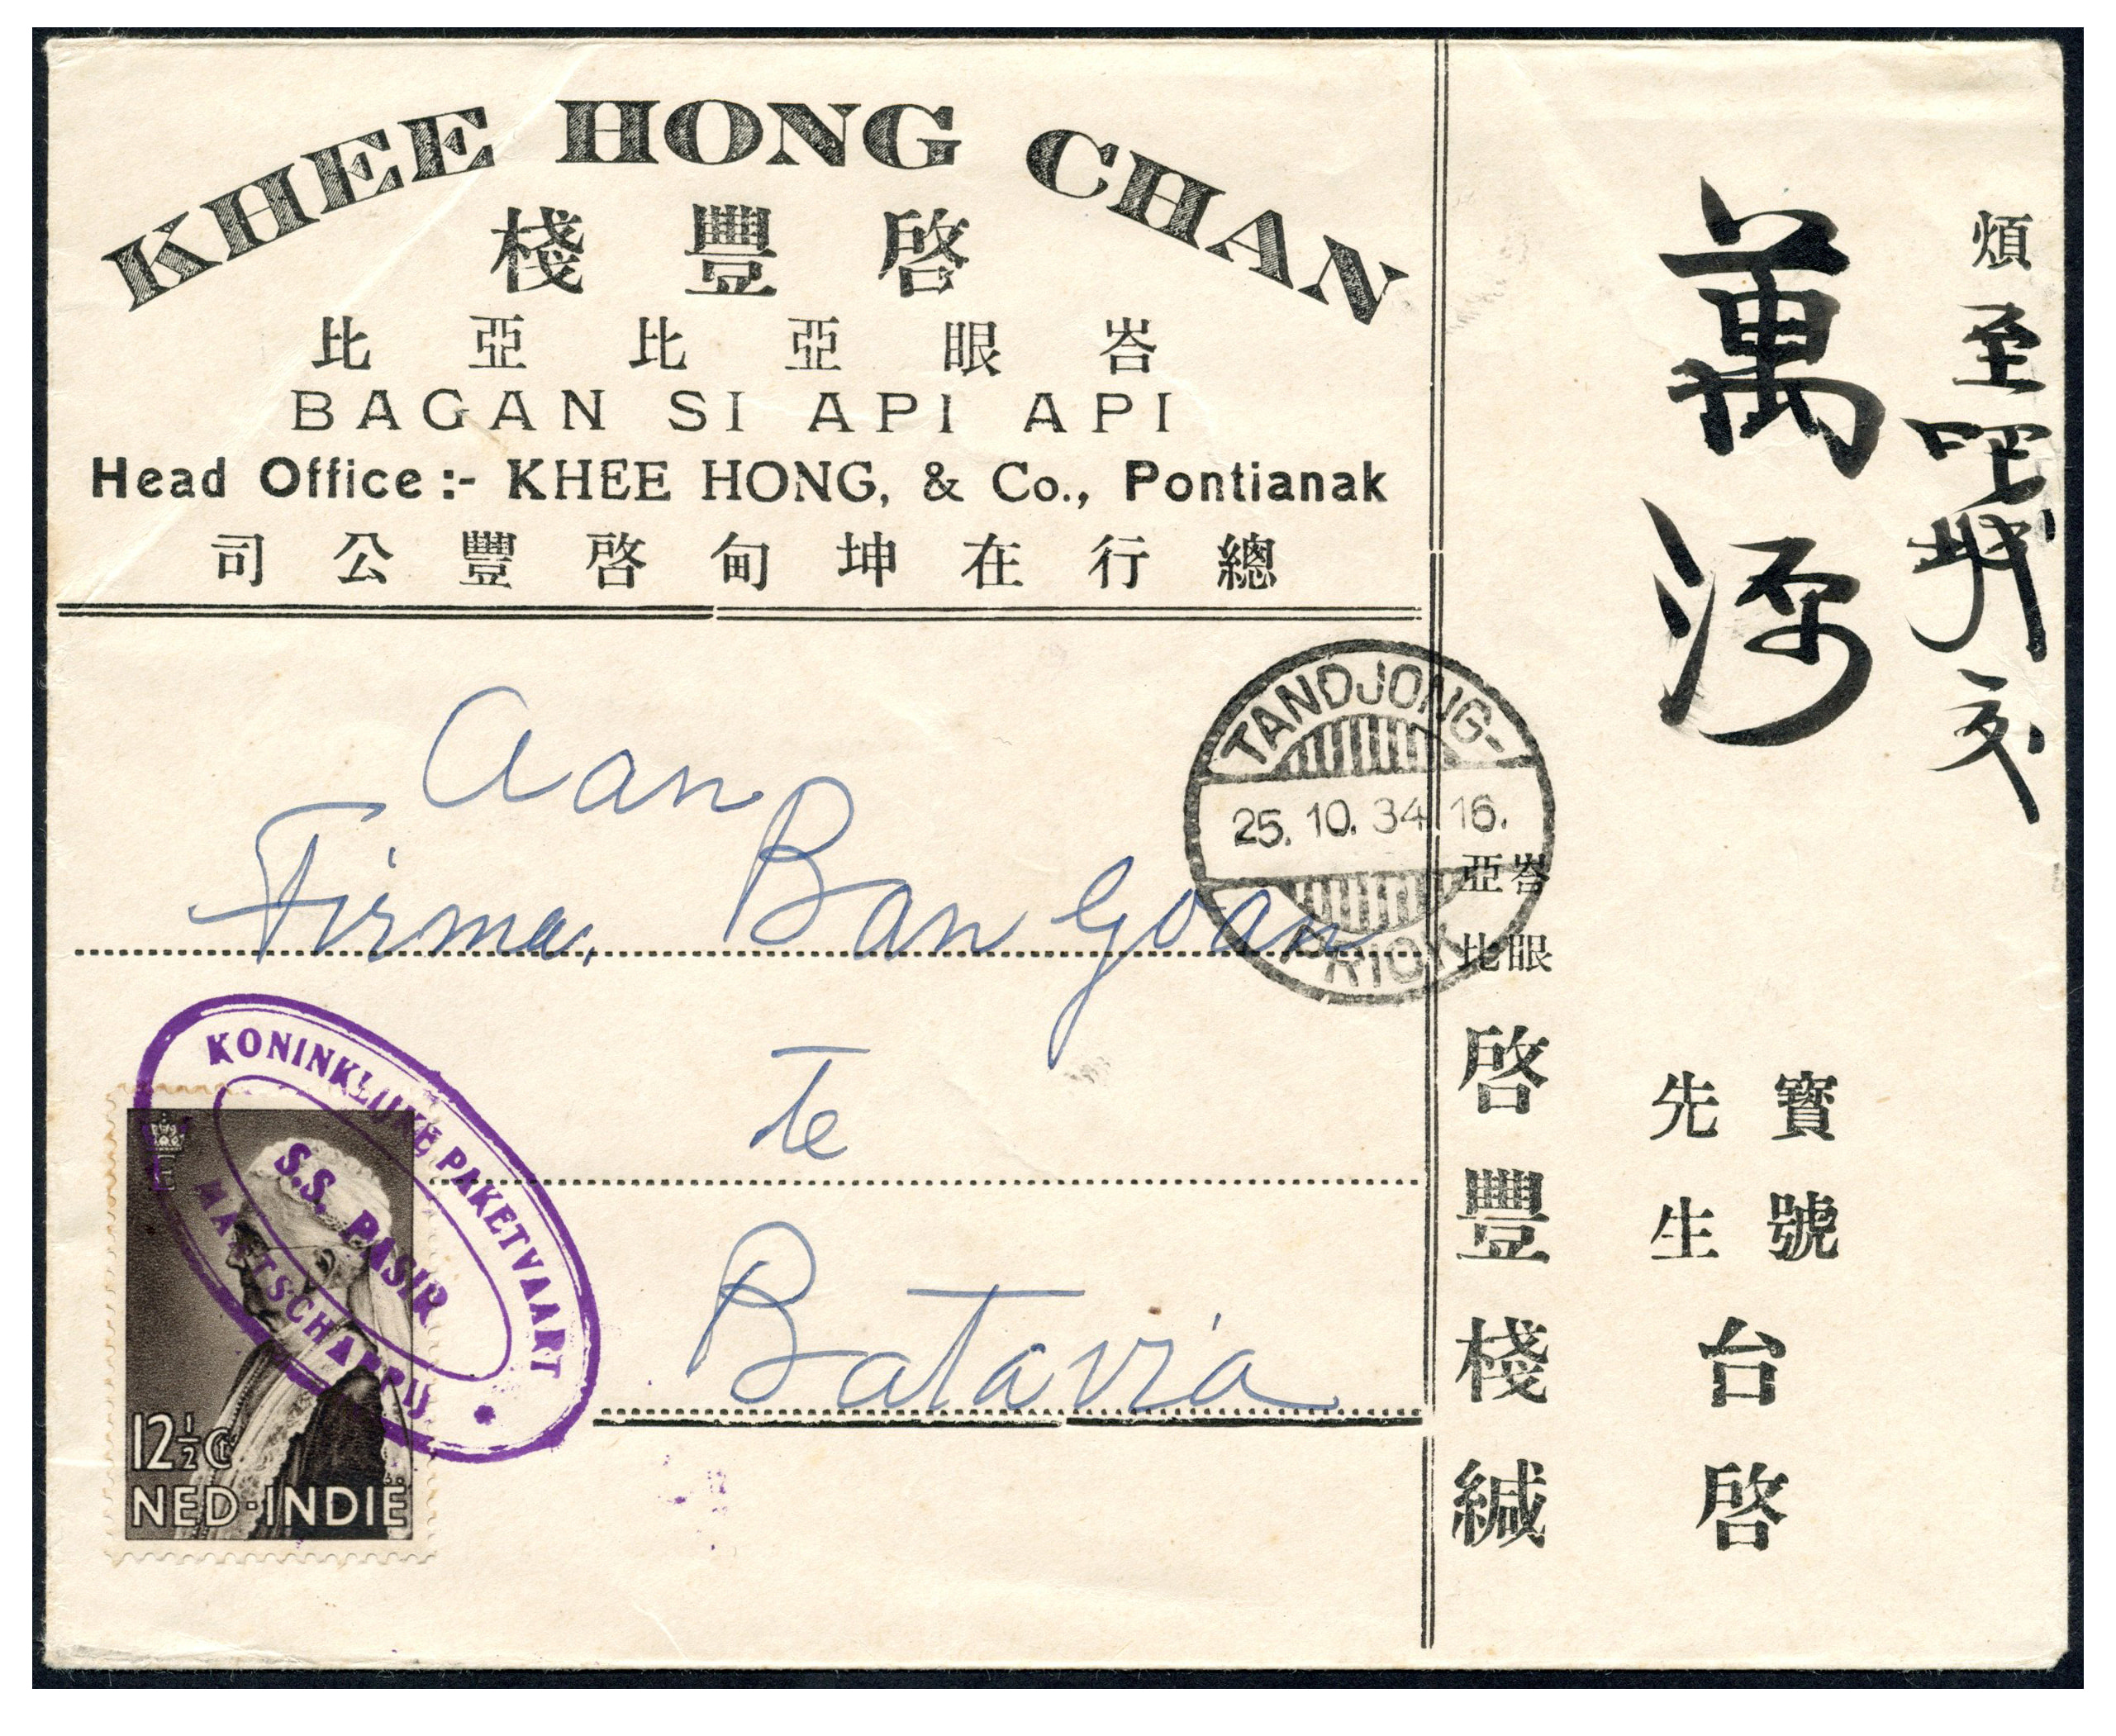 KHEE HONG CHAN
啓豐棧
峇眼亞比亞比
BAGAN SI API API
Head Office :- KHEE HONG, & Co., Pontianak
總行在坤甸啓豐公司
Aan
Firma. Ban Goan
te
Batavia
TANDJONG-
25. 10. 34 16.
PRIOK
KONINKLIJKE PAKETVAART
S.S. PASIR
MAATSCHAPPIJ
12½ Ct
NED·INDIË
煩至吧城交
萬源
寶號
先生
台啓
峇眼
亞比
啓豐棧緘